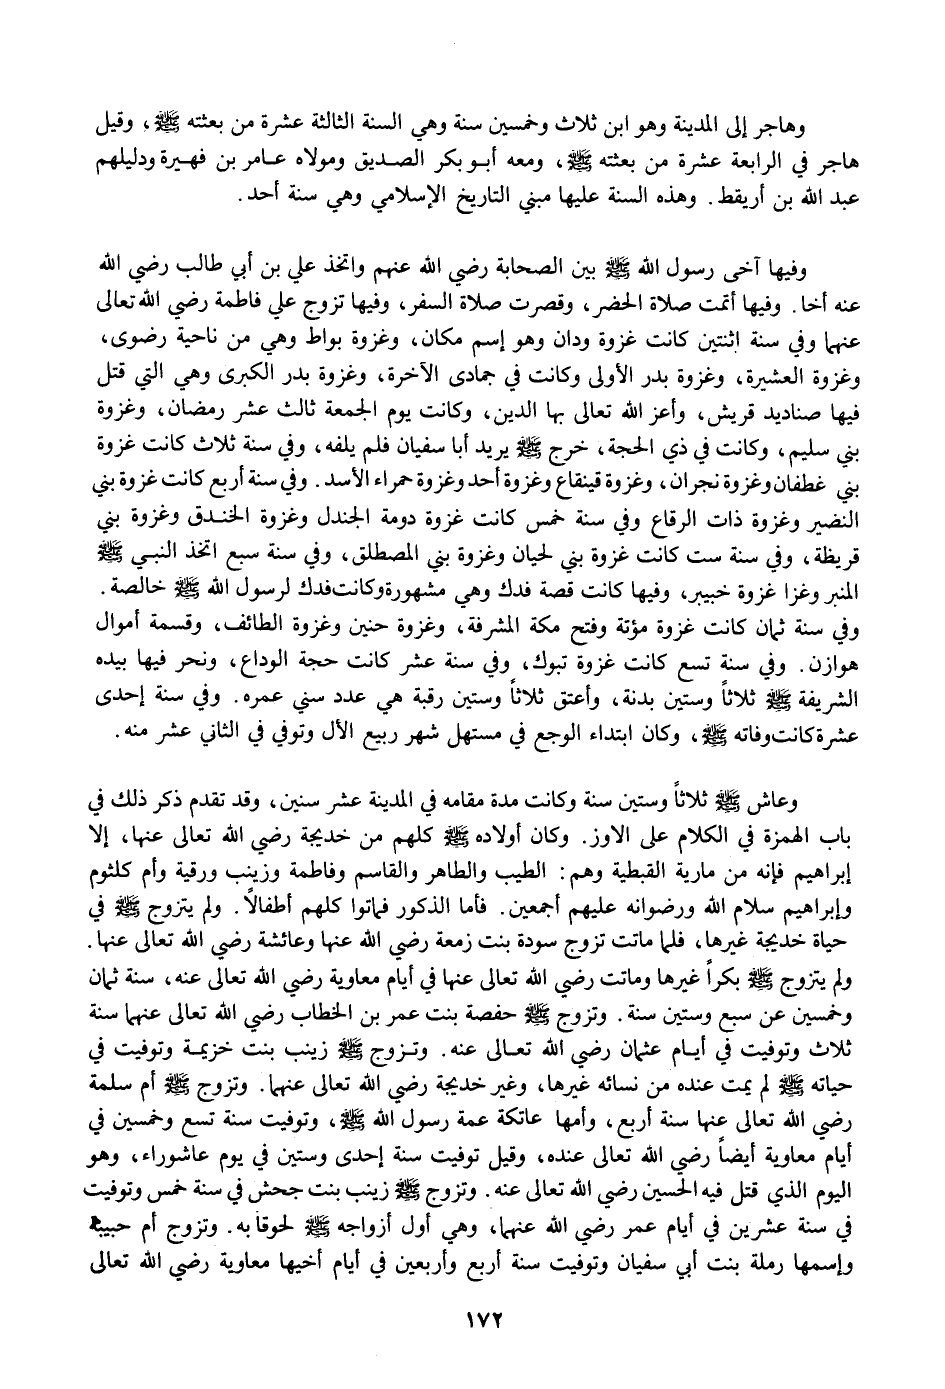 وهاجر إلى المدينة وهو ابن ثلاث وخمسين سنة وهي السنة الثالثة عشرة من بعثته ﷺ، وقيل
هاجر في الرابعة عشرة من بعثته ﷺ، ومعه أبو بكر الصديق ومولاه عامر بن فهيرة ودليلهم
عبد الله بن أريقط. وهذه السنة عليها مبني التاريخ الإسلامي وهي سنة أحد.
وفيها آخى رسول الله ﷺ بين الصحابة رضي الله عنهم واتخذ علي بن أبي طالب رضي الله
عنه أخا. وفيها أتمت صلاة الحضر، وقصرت صلاة السفر، وفيها تزوج علي فاطمة رضي الله تعالى
عنهما وفي سنة اثنتين كانت غزوة ودان وهو إسم مكان، وغزوة بواط وهي من ناحية رضوى،
وغزوة العشيرة، وغزوة بدر الأولى وكانت في جمادى الآخرة، وغزوة بدر الكبرى وهي التي قتل
فيها صناديد قريش، وأعز الله تعالى بها الدين، وكانت يوم الجمعة ثالث عشر رمضان، وغزوة
بني سليم، وكانت في ذي الحجة، خرج ﷺ يريد أبا سفيان فلم يلفه، وفي سنة ثلاث كانت غزوة
بني غطفان وغزوة نجران، وغزوة قينقاع وغزوة أحد وغزوة حمراء الأسد. وفي سنة أربع كانت غزوة بني
النضير وغزوة ذات الرقاع وفي سنة خمس كانت غزوة دومة الجندل وغزوة الخندق وغزوة بني
قريظة، وفي سنة ست كانت غزوة بني لحيان وغزوة بني المصطلق، وفي سنة سبع اتخذ النبي ﷺ
المنبر وغزا غزوة خبيبر، وفيها كانت قصة فدك وهي مشهورة وكانت فدك لرسول الله ﷺ خالصة.
وفي سنة ثمان كانت غزوة مؤتة وفتح مكة المشرفة، وغزوة حنين وغزوة الطائف، وقسمة أموال
هوازن. وفي سنة تسع كانت غزوة تبوك، وفي سنة عشر كانت حجة الوداع، ونحر فيها بيده
الشريفة ﷺ ثلاثاً وستين بدنة، وأعتق ثلاثاً وستين رقبة هي عدد سني عمره. وفي سنة إحدى
عشرة كانت وفاته ﷺ، وكان ابتداء الوجع في مستهل شهر ربيع الأل وتوفي في الثاني عشر منه.
وعاش ﷺ ثلاثاً وستين سنة وكانت مدة مقامه في المدينة عشر سنين، وقد تقدم ذكر ذلك في
باب الهمزة في الكلام على الاوز. وكان أولاده ﷺ كلهم من خديجة رضي الله تعالى عنها، إلا
إبراهيم فإنه من مارية القبطية وهم: الطيب والطاهر والقاسم وفاطمة وزينب ورقية وأم كلثوم
وإبراهيم سلام الله ورضوانه عليهم أجمعين. فأما الذكور فماتوا كلهم أطفالاً. ولم يتزوج ﷺ في
حياة خديجة غيرها، فلما ماتت تزوج سودة بنت زمعة رضي الله عنها وعائشة رضي الله تعالى عنها.
ولم يتزوج ﷺ بكراً غيرها وماتت رضي الله تعالى عنها في أيام معاوية رضي الله تعالى عنه، سنة ثمان
وخمسين عن سبع وستين سنة. وتزوج ﷺ حفصة بنت عمر بن الخطاب رضي الله تعالى عنهما سنة
ثلاث وتوفيت في أيام عثمان رضي الله تعالى عنه. وتزوج ﷺ زينب بنت خزيمة وتوفيت في
حياته ﷺ لم يمت عنده من نسائه غيرها، وغير خديجة رضي الله تعالى عنهما. وتزوج ﷺ أم سلمة
رضي الله تعالى عنها سنة أربع، وأمها عاتكة عمة رسول الله ﷺ، وتوفيت سنة تسع وخمسين في
أيام معاوية أيضاً رضي الله تعالى عنده، وقيل توفيت سنة إحدى وستين في يوم عاشوراء، وهو
اليوم الذي قتل فيه الحسين رضي الله تعالى عنه. وتزوج ﷺ زينب بنت جحش في سنة خمس وتوفيت
في سنة عشرين في أيام عمر رضي الله عنهما، وهي أول أزواجه ﷺ لحوقاً به. وتزوج أم حبيبة
وإسمها رملة بنت أبي سفيان وتوفيت سنة أربع وأربعين في أيام أخيها معاوية رضي الله تعالى
١٧٢